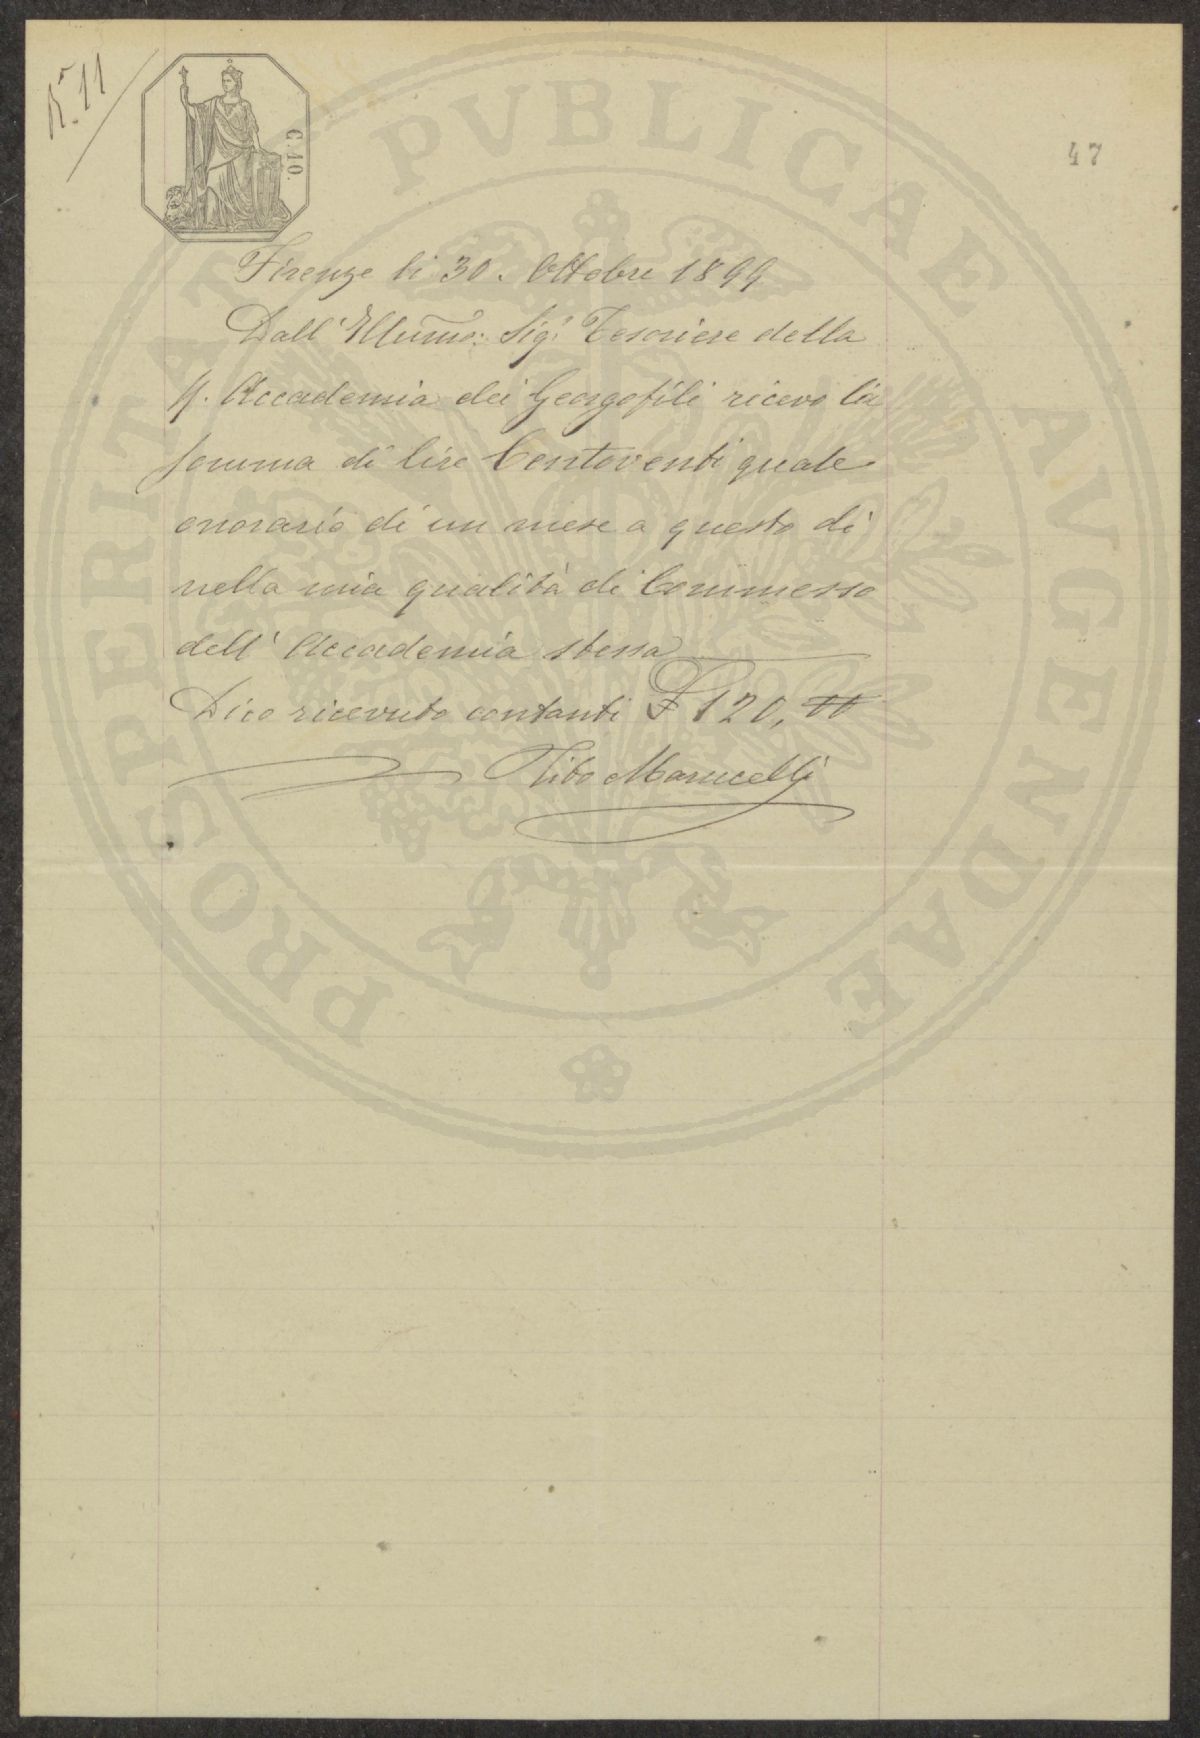 R.ª 11
C. 10.
47
PROSPERITATI PVBLICAE AVGENDAE
Firenze li 30. Ottobre 1899
Dall' Illumo: Sigr Tesoriere della
R. Accademia dei Georgofili ricevo la
somma di lire Centoventi quale
onorario di un mese a questo dì
nella mia qualità di Commesso
dell' Accademia stessa
Dico ricevuto contanti £ 120, 00
Tito Marucelli